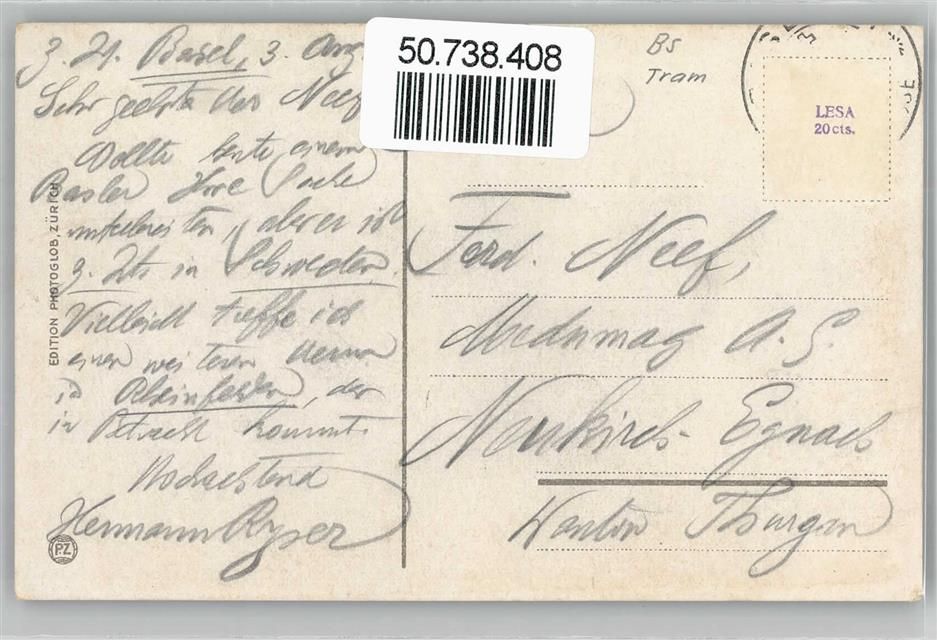 z. Zt. Basel, 3. Aug
Sehr geehrter Herr Neef
Wollte heute einem
Basler Ihre Sache
unterbreiten, aber er ist
z. Zt. in Schweden.
Vielleicht treffe ich
einen weiteren Herrn
in Rheinfelden, der
in Betracht kommt.
Hochachtend
Hermann Ryser
EDITION PHOTOGLOB, ZÜRICH
PZ
50.738.408
BS
Tram
LESA
20 cts.
Ferd. Neef,
A. G.
Neukirch-Egnach
Kanton Thurgau